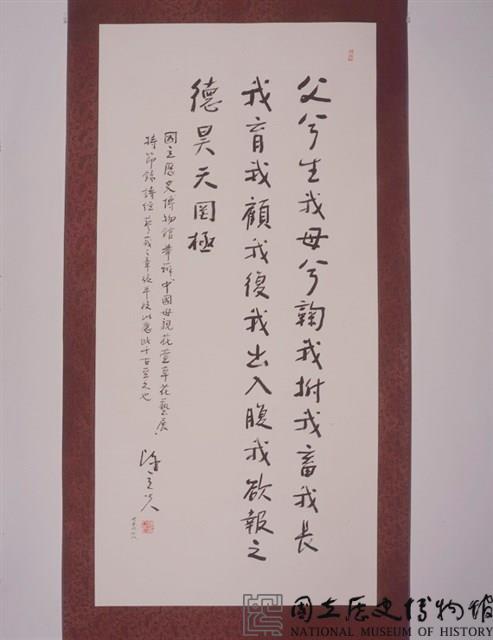 父兮生我母兮鞠我拊我畜我長
我育我顧我復我出入腹我欲報之
德昊天罔極
國立歷史博物館舉辦中國母親花萱草花藝展
特節錄詩經蓼莪之章
國立歷史博物館
NATIONAL MUSEUM OF HISTORY